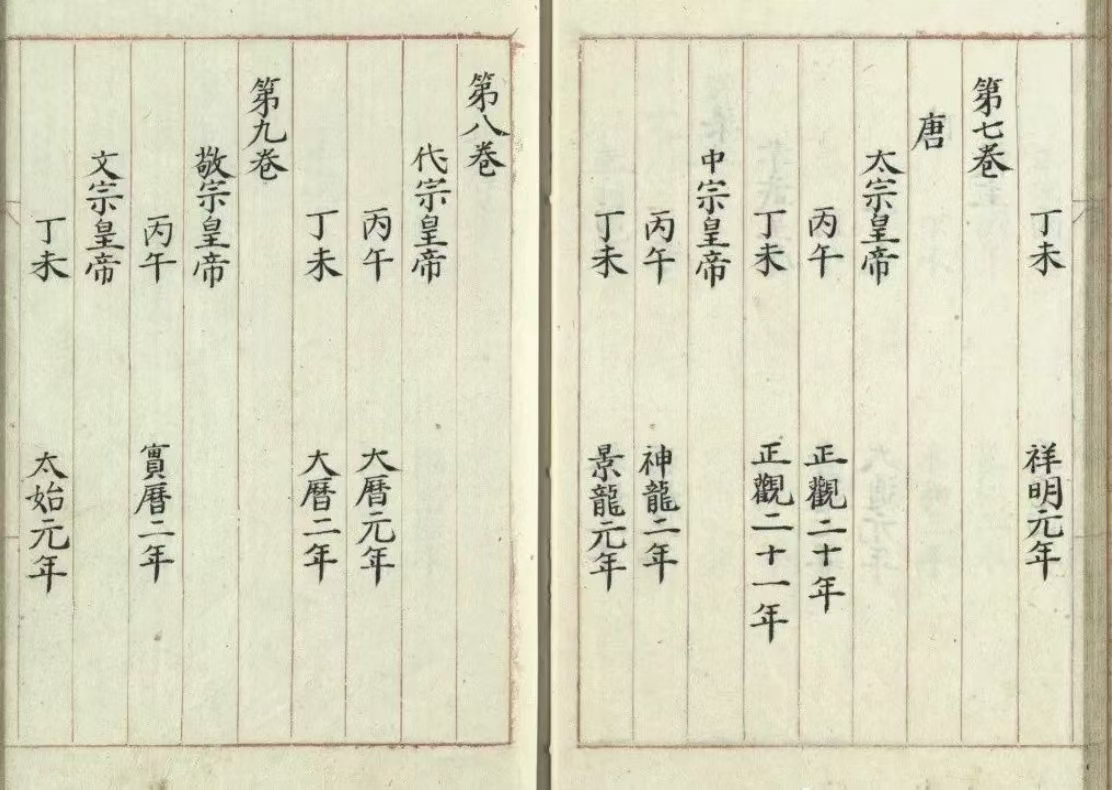 丁未 祥明元年
第七巻
唐
太宗皇帝
丙午 正觀二十年
丁未 正觀二十一年
中宗皇帝
丙午 神龍二年
丁未 景龍元年
第八巻
代宗皇帝
丙午 大暦元年
丁未 大暦二年
第九巻
敬宗皇帝
丙午 實暦二年
文宗皇帝
丁未 太始元年